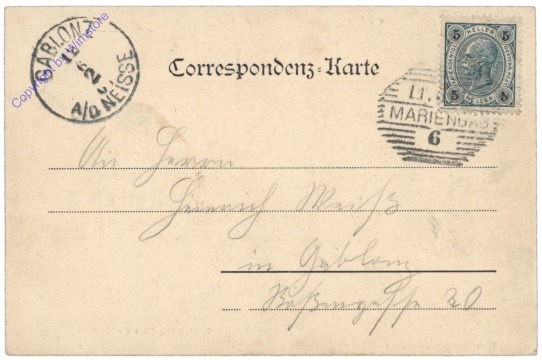 GABLONZ A/D NEISSE
Copyright by Wnrstore
Correspondenz-Karte
5 HELLER 5
5 HELLER 5
11.
MARIENBAD
6
An Herrn
Heinrich Weiß
in Gablonz
20